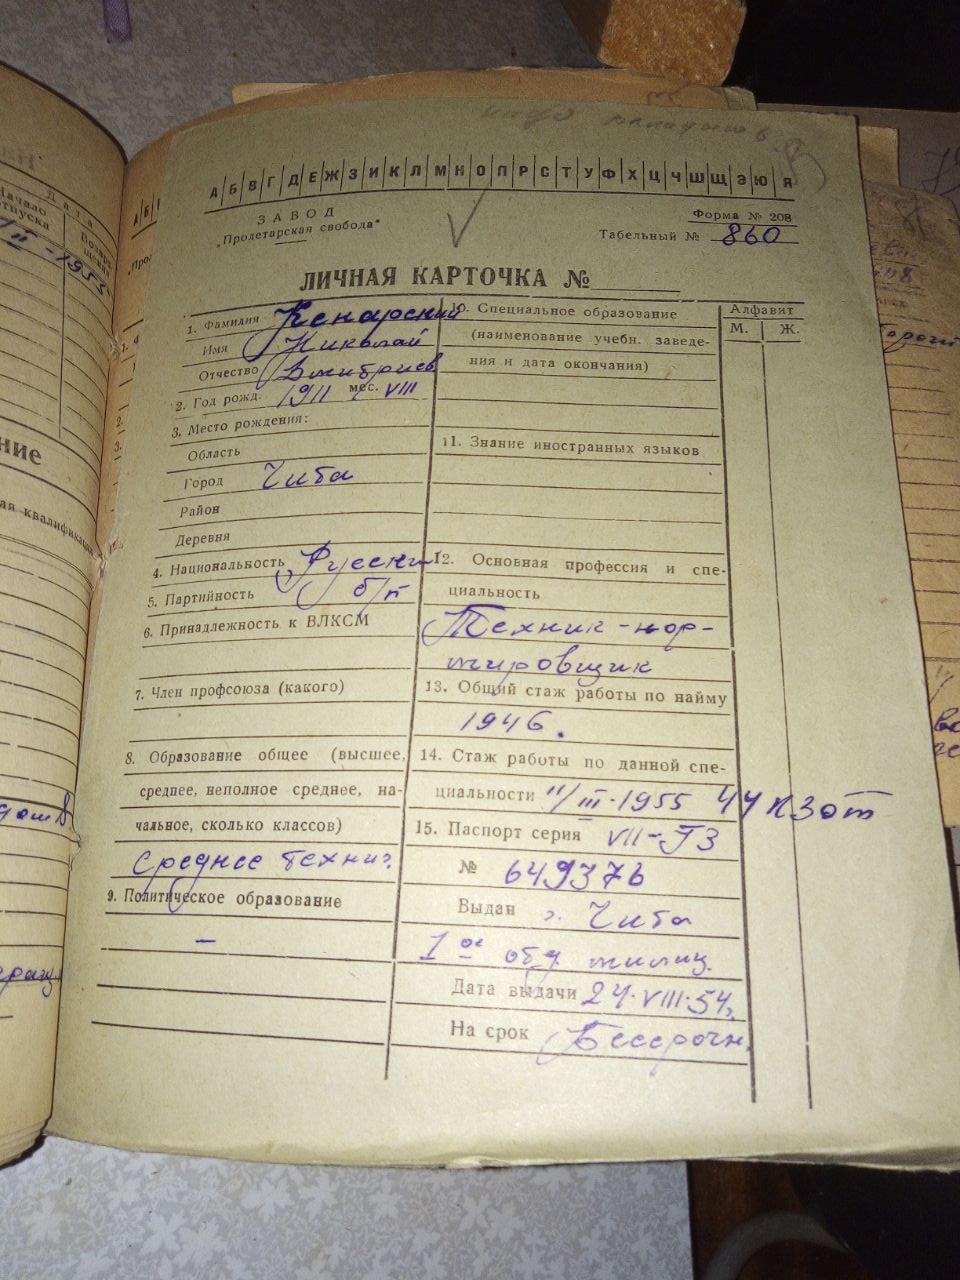 А Б В Г Д Е Ж З И К Л М Н О П Р С Т У Ф Х Ц Ч Ш Щ Э Ю Я
ЗАВОД
„Пролетарская свобода"
Форма № 208
Табельный № 860
ЛИЧНАЯ КАРТОЧКА №
1. Фамилия Кенарский
Имя Николай
Отчество Дмитриев
2. Год рожд. 1911 мес. VIII
3. Место рождения:
Область
Город Чита
Район
Деревня
4. Национальность Русский
5. Партийность б/п
6. Принадлежность к ВЛКСМ
7. Член профсоюза (какого)
8. Образование общее (высшее,
среднее, неполное среднее, на-
чальное, сколько классов)
Среднее технич.
9. Политическое образование
—
10. Специальное образование
(наименование учебн. заведе-
ния и дата окончания)
11. Знание иностранных языков
12. Основная профессия и спе-
циальность
Техник-нор-
мировщик
13. Общий стаж работы по найму
1946.
14. Стаж работы по данной спе-
циальности 11/III-1955 44 КЗОТ
15. Паспорт серия VII-ТЗ
№ 649376
Выдан г. Чита
1ое отд. милиц.
Дата выдачи 24.VIII.54г.
На срок Бессрочн.
Алфавит
М. Ж.
Дата
Начало
отпуска
II-1955
ние
ая квалификация